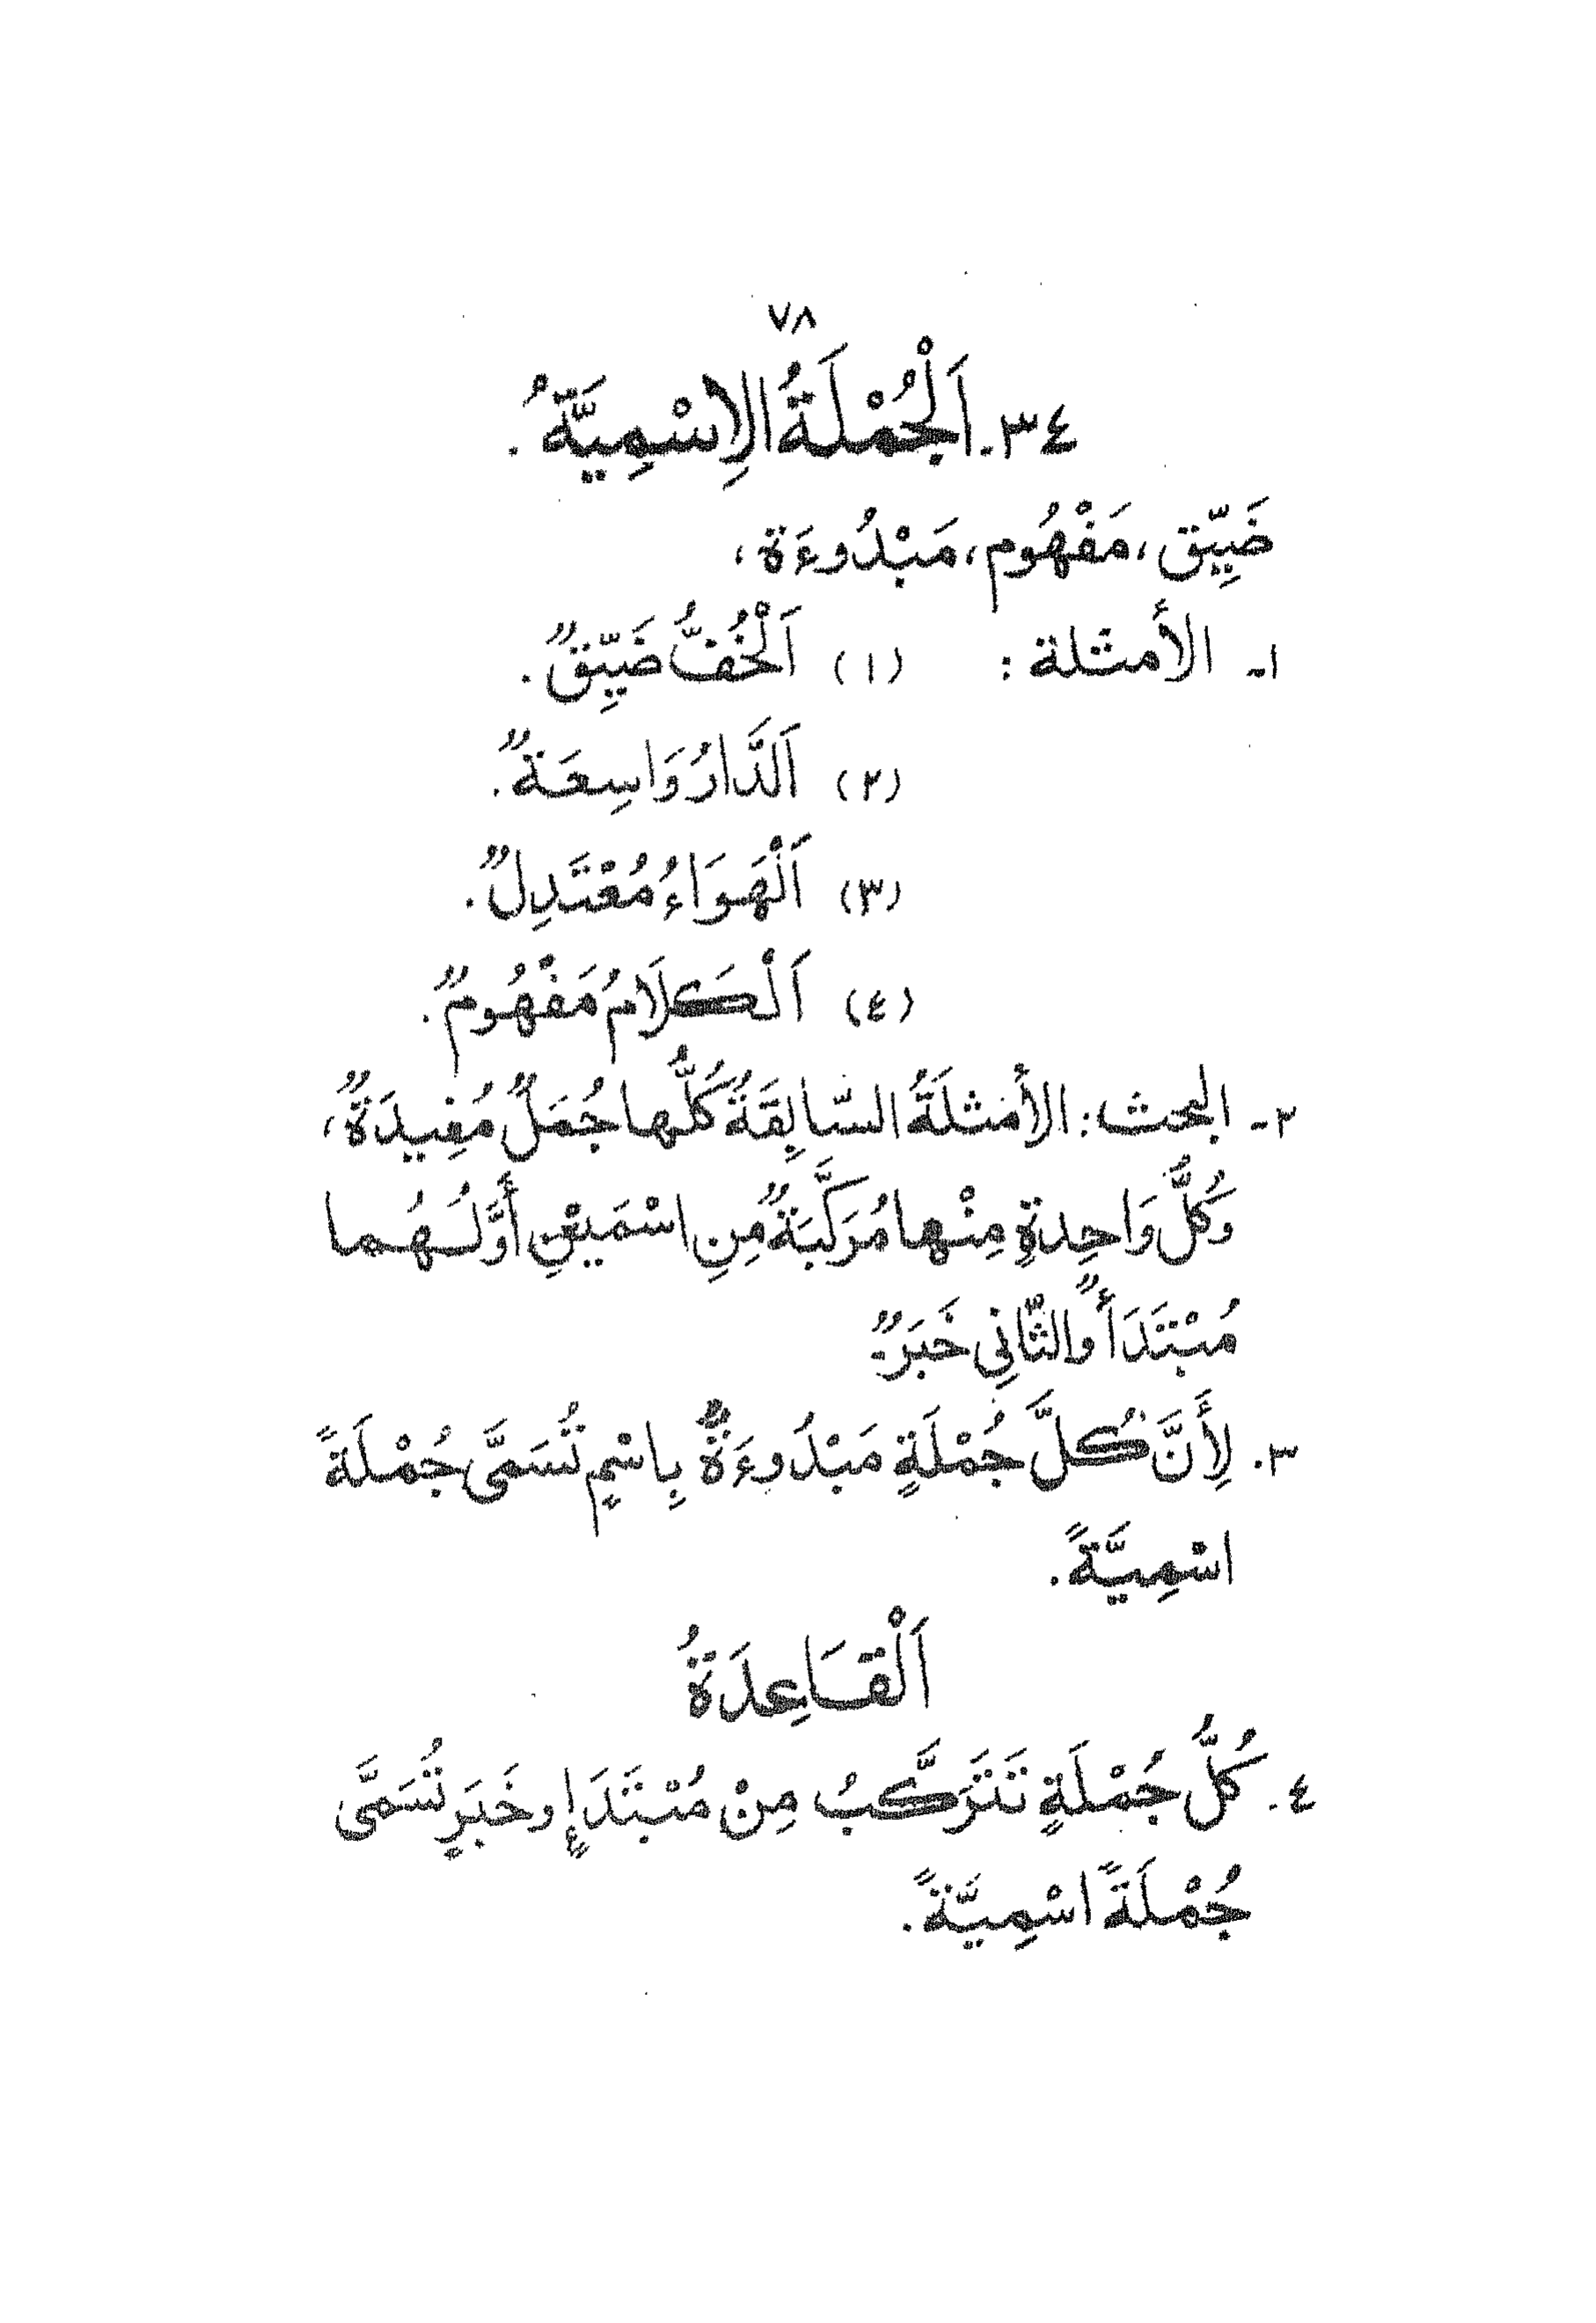 ٧٨
٣٤. اَلْجُمْلَةُ الِاسْمِيَّةُ.
ضَيِّق، مَفْهُوم، مَبْدُوءَة،
١- الأمثَلة : (١) اَلْخُفُّ ضَيِّقٌ.
(٢) اَلدَّارُ وَاسِعَةٌ.
(٣) اَلْهَوَاءُ مُعْتَدِلٌ.
(٤) اَلْكَلَامُ مَفْهُومٌ.
٢- البحث: الأَمثلَةُ السّابِقَةُ كُلُّها جُمَلٌ مُفِيدَةٌ،
وَكُلُّ وَاحِدةٍ مِنْها مُرَكَّبَةٌ مِنِ اسْمَيْنِ أَوَّلُهُما
مُبْتَدَأٌ والثّانِي خَبَرٌ.
٣. لِأَنَّ كُلَّ جُمْلَةٍ مَبْدُوءَةٌ بِاسْمٍ تُسَمَّى جُمْلَةً
اسْمِيَّةً.
اَلْقَاعِدَةُ
٤. كُلُّ جُمْلَةٍ تَتَرَكَّبُ مِنْ مُبْتَدَإٍ وخَبَرٍ تُسَمَّى
جُمْلَةً اسْمِيَّةً.